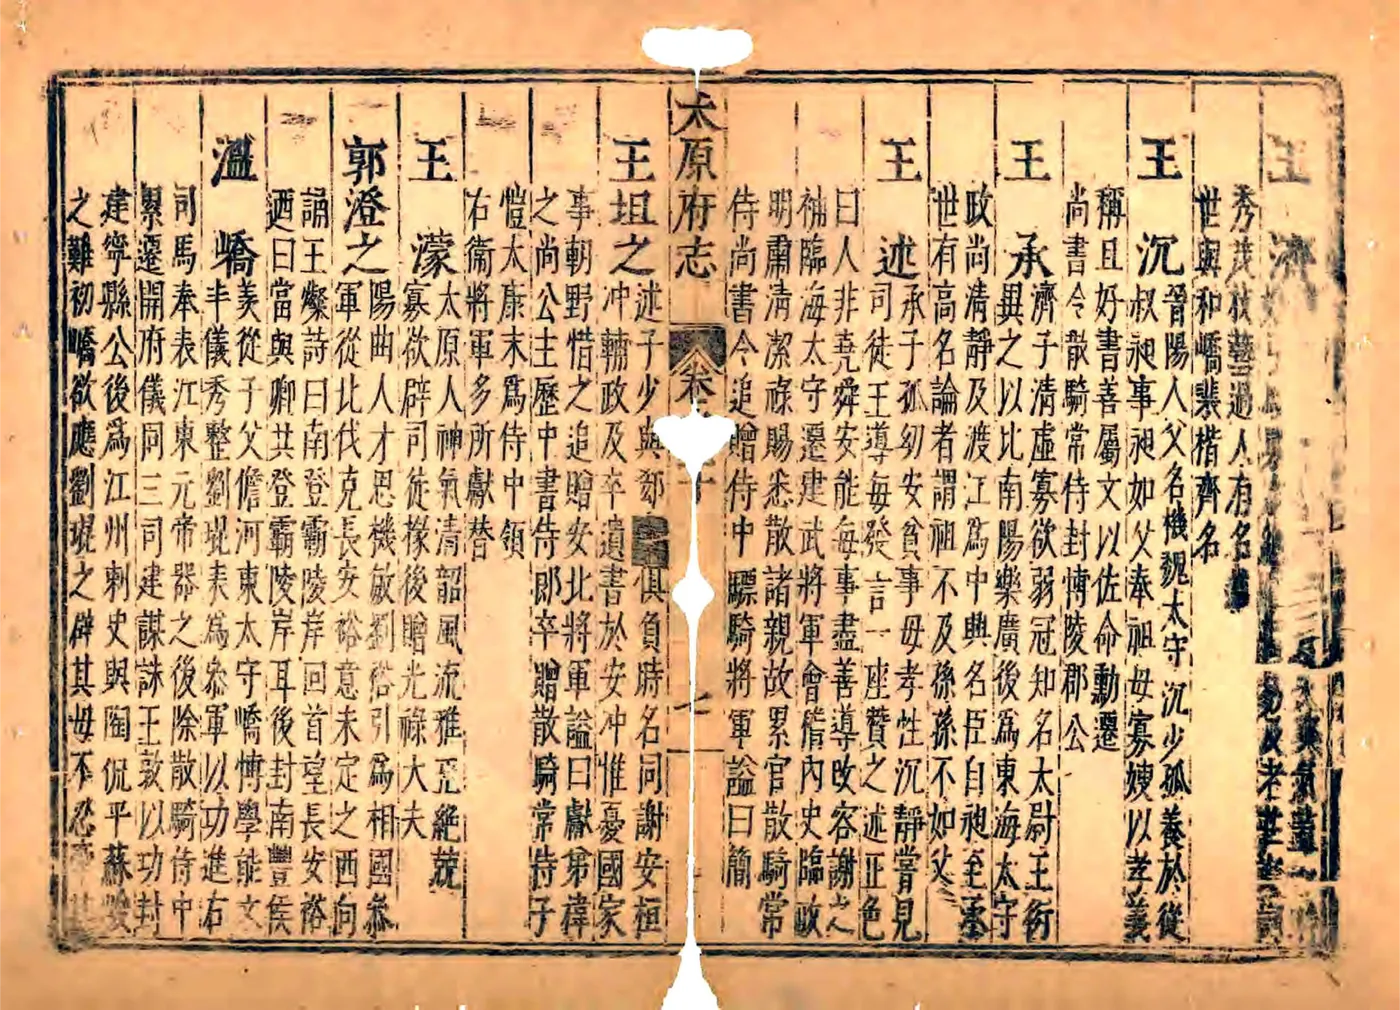 王濟
氣蓋一
易及老莊
秀茂技藝過人有名
世與和嶠裴楷齊名
王沉晉陽人父名機魏太守沉少孤養於從
叔昶事昶如父奉祖母寡嫂以孝義
稱且好書善屬文以佐命勳遷
尚書令散騎常侍封博陵郡公
王承濟子清虛寡欲弱冠知名太尉王衍
異之以比南陽樂廣後為東海太守
政尚清靜及渡江為中興名臣自昶至承
世有高名論者謂祖不及孫孫不如父
王述承子孤幼安貧事母孝性沉靜嘗見
司徒王導每發言一座贊之述正色
曰人非堯舜安能每事盡善導攺容謝之
補臨海太守遷建武將軍會稽內史臨政
明肅清潔祿賜悉散諸親故累官散騎常
侍尚書令追贈侍中驃騎將軍謚曰簡
太原府志
卷 十 七
王坦之述子少與郗俱負時名同謝安桓
冲輔政及卒遺書於安冲惟憂國家
事朝野惜之追贈安北將軍謚曰獻弟禕
之尚公主歷中書侍郎卒贈散騎常侍子
愷太康末為侍中領
右衛將軍多所獻替
王濛太原人神氣清韶風流雅亮絕兢
寡欲辟司徒掾後贈光祿大夫
郭澄之陽曲人才思機敏劉裕引為相國叅
軍從北伐克長安裕意未定之西向
誦王粲詩曰南登霸陵岸回首望長安裕
迺曰當與卿共登霸陵岸耳後封南豐侯
溫嶠羨從子父儋河東太守嶠博學能文
丰儀秀整劉琨表為叅軍以功進右
司馬奉表江東元帝器之後除散騎侍中
累遷開府儀同三司建謀誅王敦以功封
建寧縣公後為江州刺史與陶侃平蘇峻
之難初嶠欲應劉琨之辟其母不忍